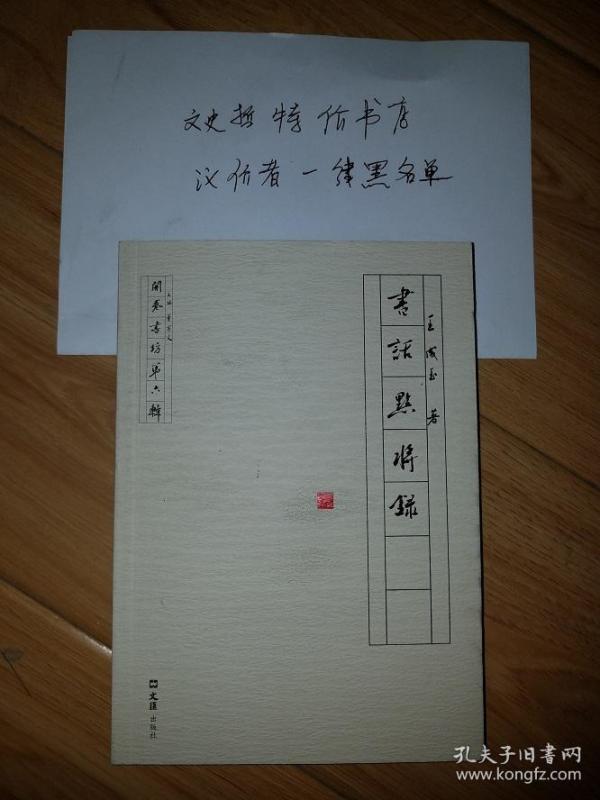 文史哲特价书店
议价者一律黑名单
書話點將録
王成玉 著
開卷書坊第六輯
主编 董宁文
文匯出版社
孔夫子旧书网
www.kongfz.com